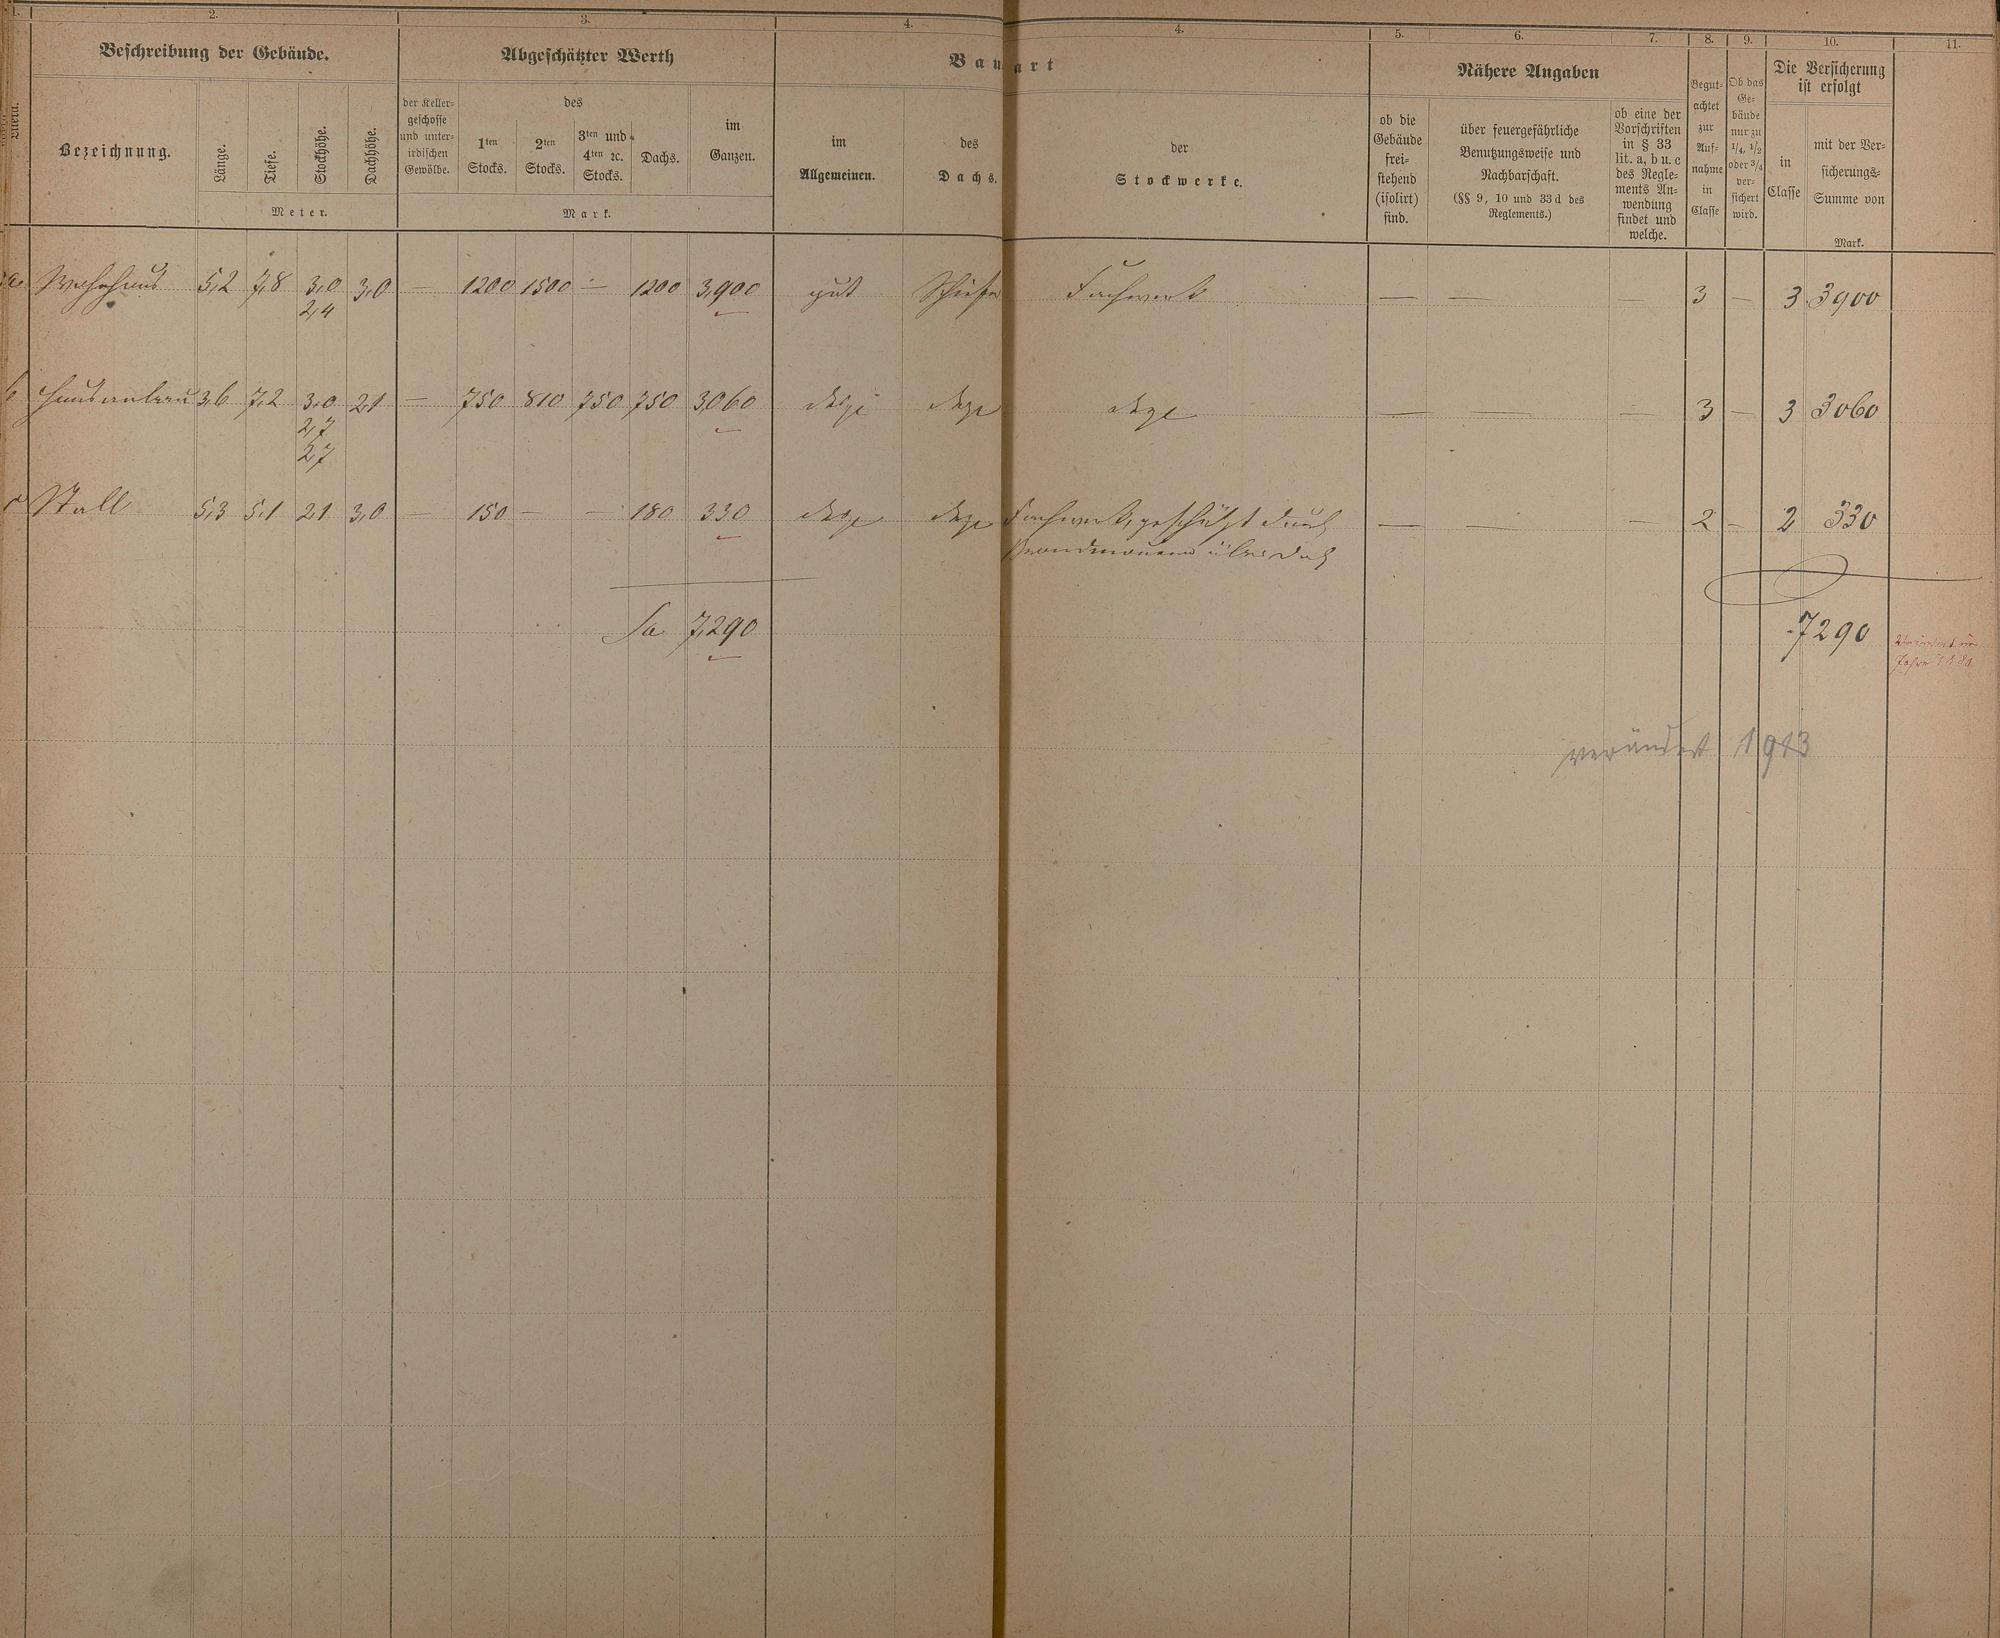 1. 2. 3. 4. 4. 5. 6. 7. 8. 9. 10. 11.
Beschreibung der Gebäude. Abgeschätzter Werth Bauart Nähere Angaben Die Versicherung
ist erfolgt
Litera.
Bezeichnung.
Länge.
Tiefe.
Stockhöhe.
Dachhöhe.
Meter.
der Keller-
geschosse
und unter-
irdischen
Gewölbe.
des
1ten
Stocks.
2ten
Stocks.
3ten und
4ten ꝛc.
Stocks.
Dachs.
im
Ganzen.
Mark.
im
Allgemeinen.
des
Dachs.
der
Stockwerke.
ob die
Gebäude
frei-
stehend
(isolirt)
sind.
über feuergefährliche
Benutzungsweise und
Nachbarschaft.
(§§ 9, 10 und 33 d des
Reglements.)
ob eine der
Vorschriften
in § 33
lit. a, b u. c
des Regle-
ments An-
wendung
findet und
welche.
Begut-
achtet
zur
Auf-
nahme
in
Classe
Ob das
Ge-
bäude
nur zu
1/4, 1/2
oder 3/4
ver-
sichert
wird.
in
Classe
mit der Ver-
sicherungs-
Summe von
Mark.
a Wohnhaus 5,2 7,8 3,0 3,0 — 1200 1500 — 1200 3,900 gut Schiefer Fachwerk — — 3 — 3 3900
2,4
b Hausanbau 3,6 7,2 3,0 2,1 — 750 810 750 750 3,060 desgl desgl desgl — — — 3 — 3 3060
2,7
2,7
c Stall 5,3 5,1 2,1 3,0 — 150 — — 180 330 desgl desgl Fachwerk, geschützt durch — — — 2 — 2 330
Brandmauern über Dach
Sa 7,290 7290
Jahre
verändert 1913